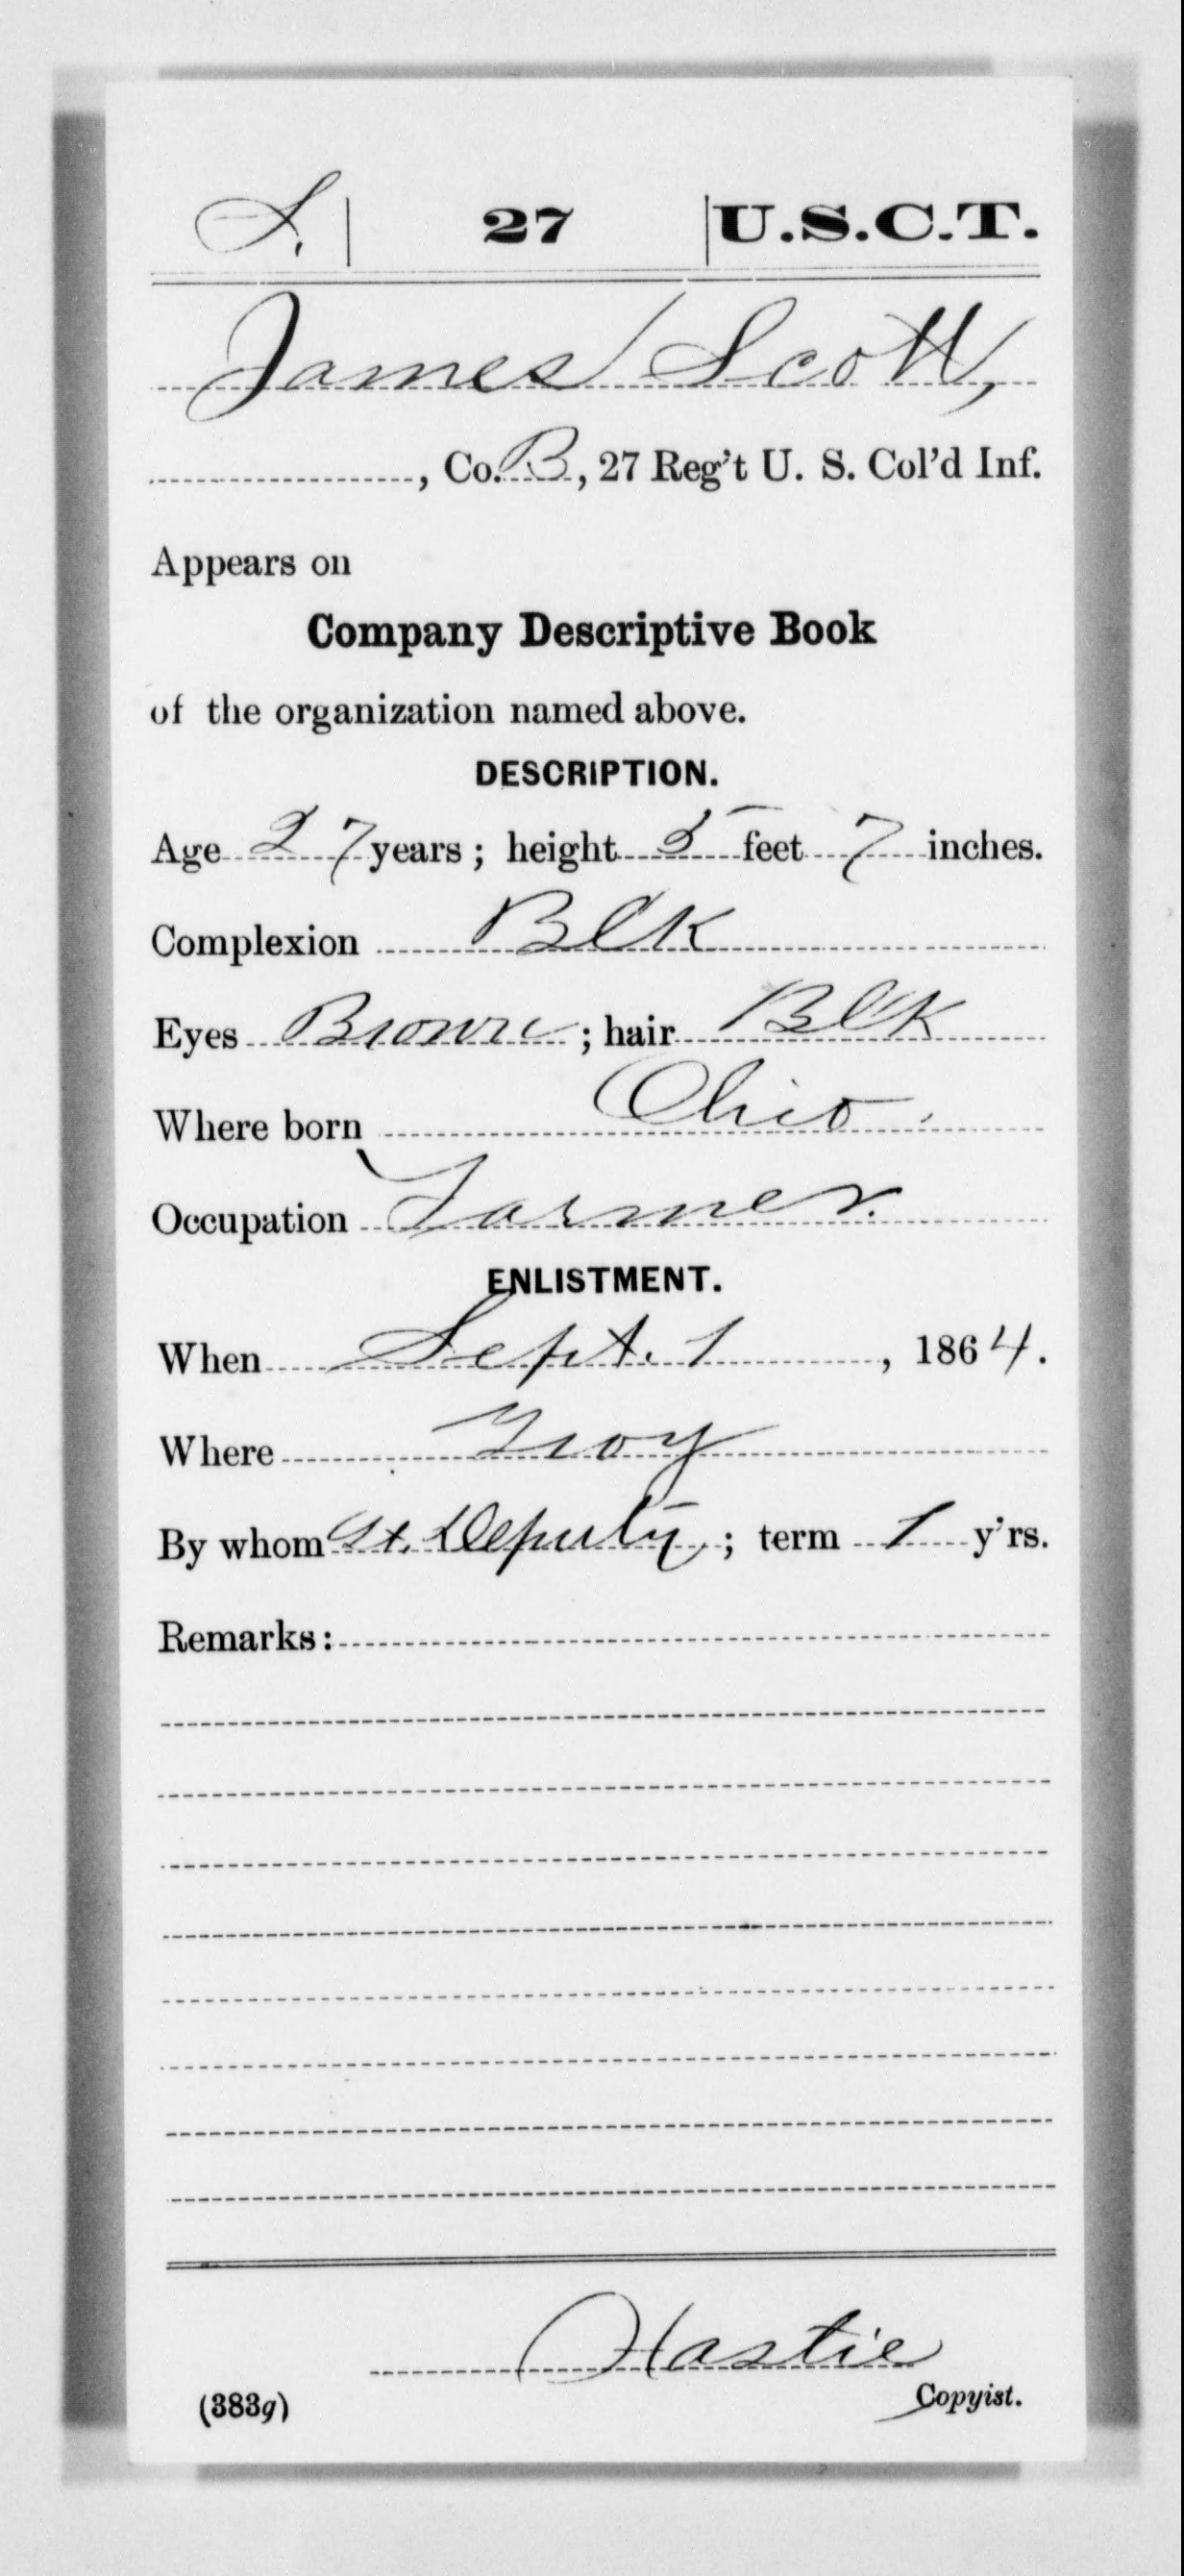 S. | 27 | U.S.C.T.
James Scott,
, Co. B, 27 Reg't U. S. Col'd Inf.
Appears on
Company Descriptive Book
of the organization named above.
DESCRIPTION.
Age 27 years; height 5 feet 7 inches.
Complexion Blk
Eyes Brown; hair Blk
Where born Ohio.
Occupation Farmer.
ENLISTMENT.
When Sept. 1, 1864.
Where Troy
By whom Deputy; term 1 y'rs.
Remarks:
Hastie
(383g) Copyist.